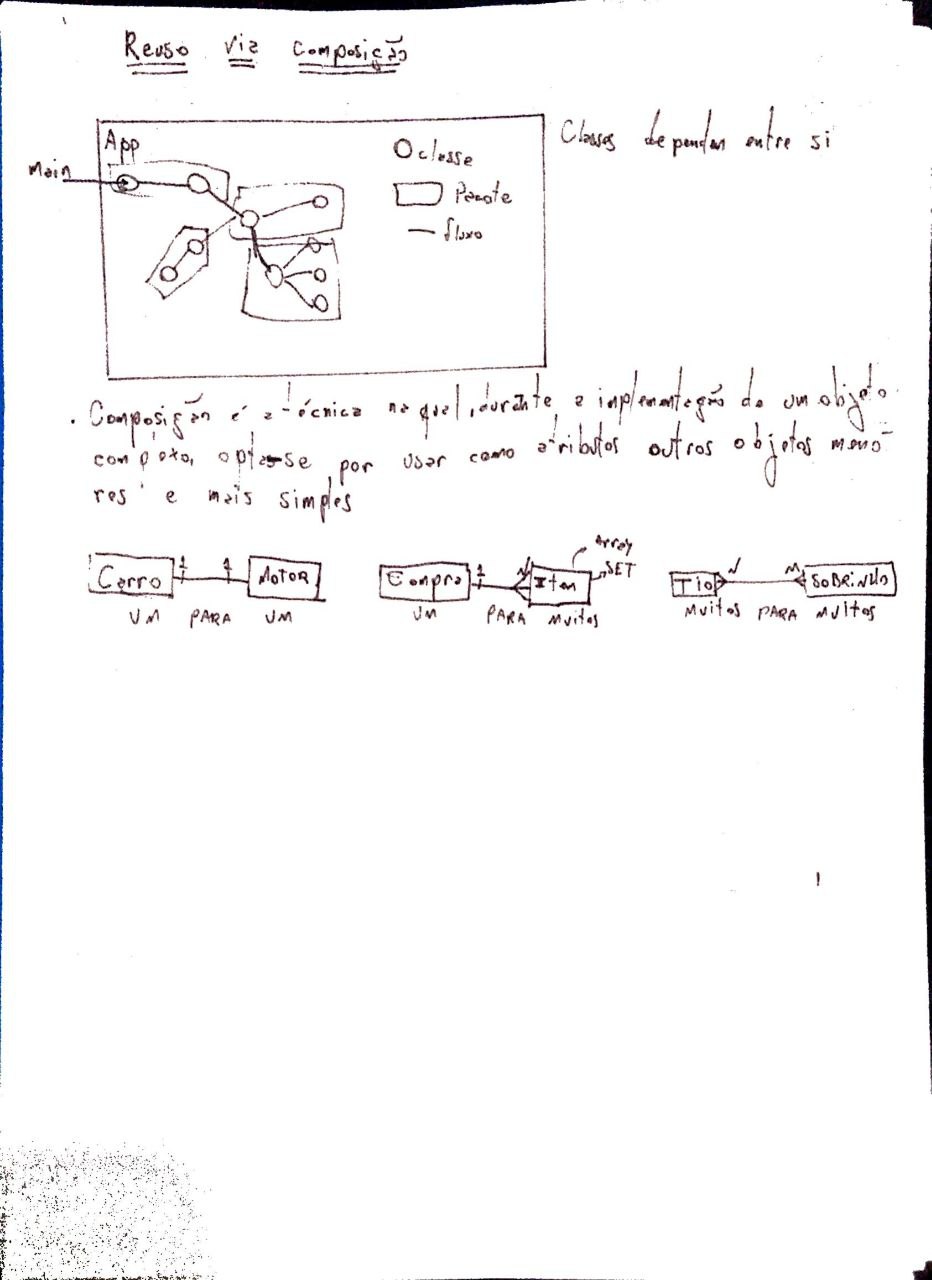 Reuso via Composição
Classes dependem entre si
App
Main
classe
Pacote
fluxo
. Composição é a técnica na qual, durante a implementação de um objeto
complexo, opta-se por usar como atributos outros objetos meno-
res e mais simples
Carro 1 1 MOTOR
UM PARA UM
Compra 1 N Item
Array
SET
UM PARA Muitos
Tio N M SOBRINHO
Muitos PARA Muitos